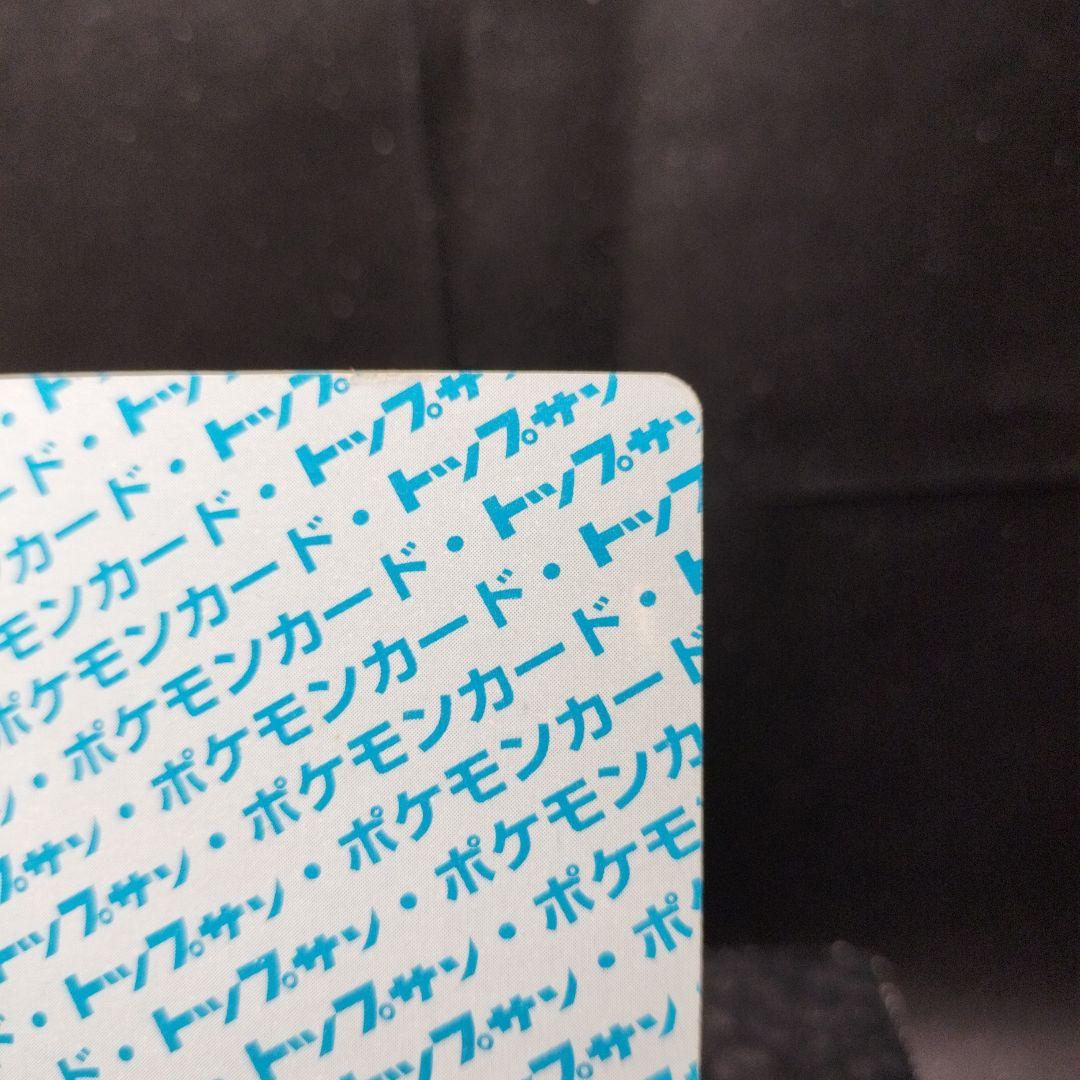 ・ト
ード・トップ
カード・トップ
モンカード・トップサ
ポケモンカード・トップサン
ン・ポケモンカード・トップサン
プサン・ポケモンカード・トップ
トップサン・ポケモンカード・ト
・トップサン・ポケモンカード
ド・トップサン・ポケモンカ
トップサン・ポケモ
トップサン・ポ
トップサン